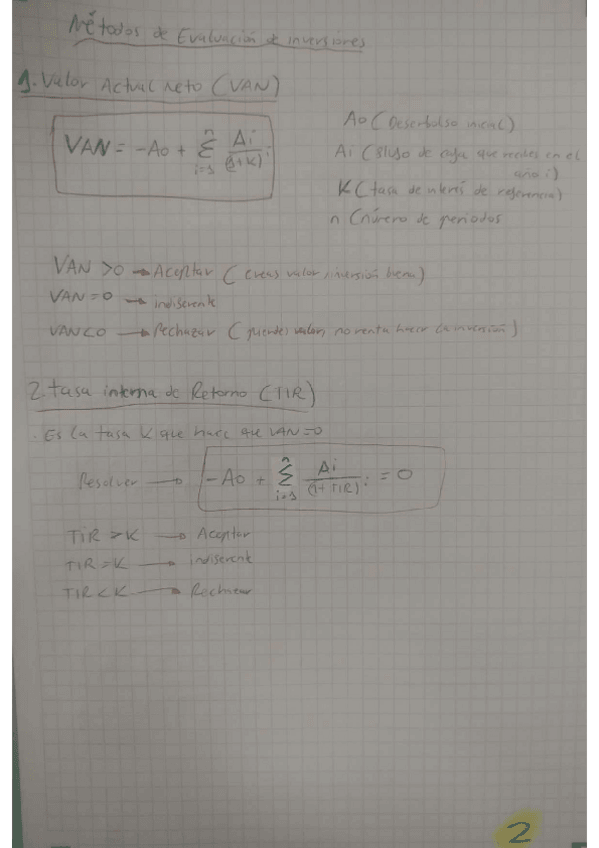 Métodos de Evaluación de inversiones
1. Valor Actual Neto (VAN)
VAN = -Ao + Σ(i=1, n) Ai/(1+K)^i
Ao (Desembolso inicial)
Ai (flujo de caja que recibes en el
año i)
K (tasa de interés de referencia)
n (número de periodos
VAN >0 → Aceptar ( creas valor, inversión buena)
VAN = 0 → indiferente
VAN<0 → Rechazar ( pierdes valor, no renta hacer la inversión)
2. tasa interna de Retorno (TIR)
. Es la tasa K que hace que VAN=0
Resolver → -Ao + Σ(i=1, n) Ai/(1+TIR)^i = 0
TIR > K → Aceptar
TIR = K → indiferente
TIR < K → Rechazar
2